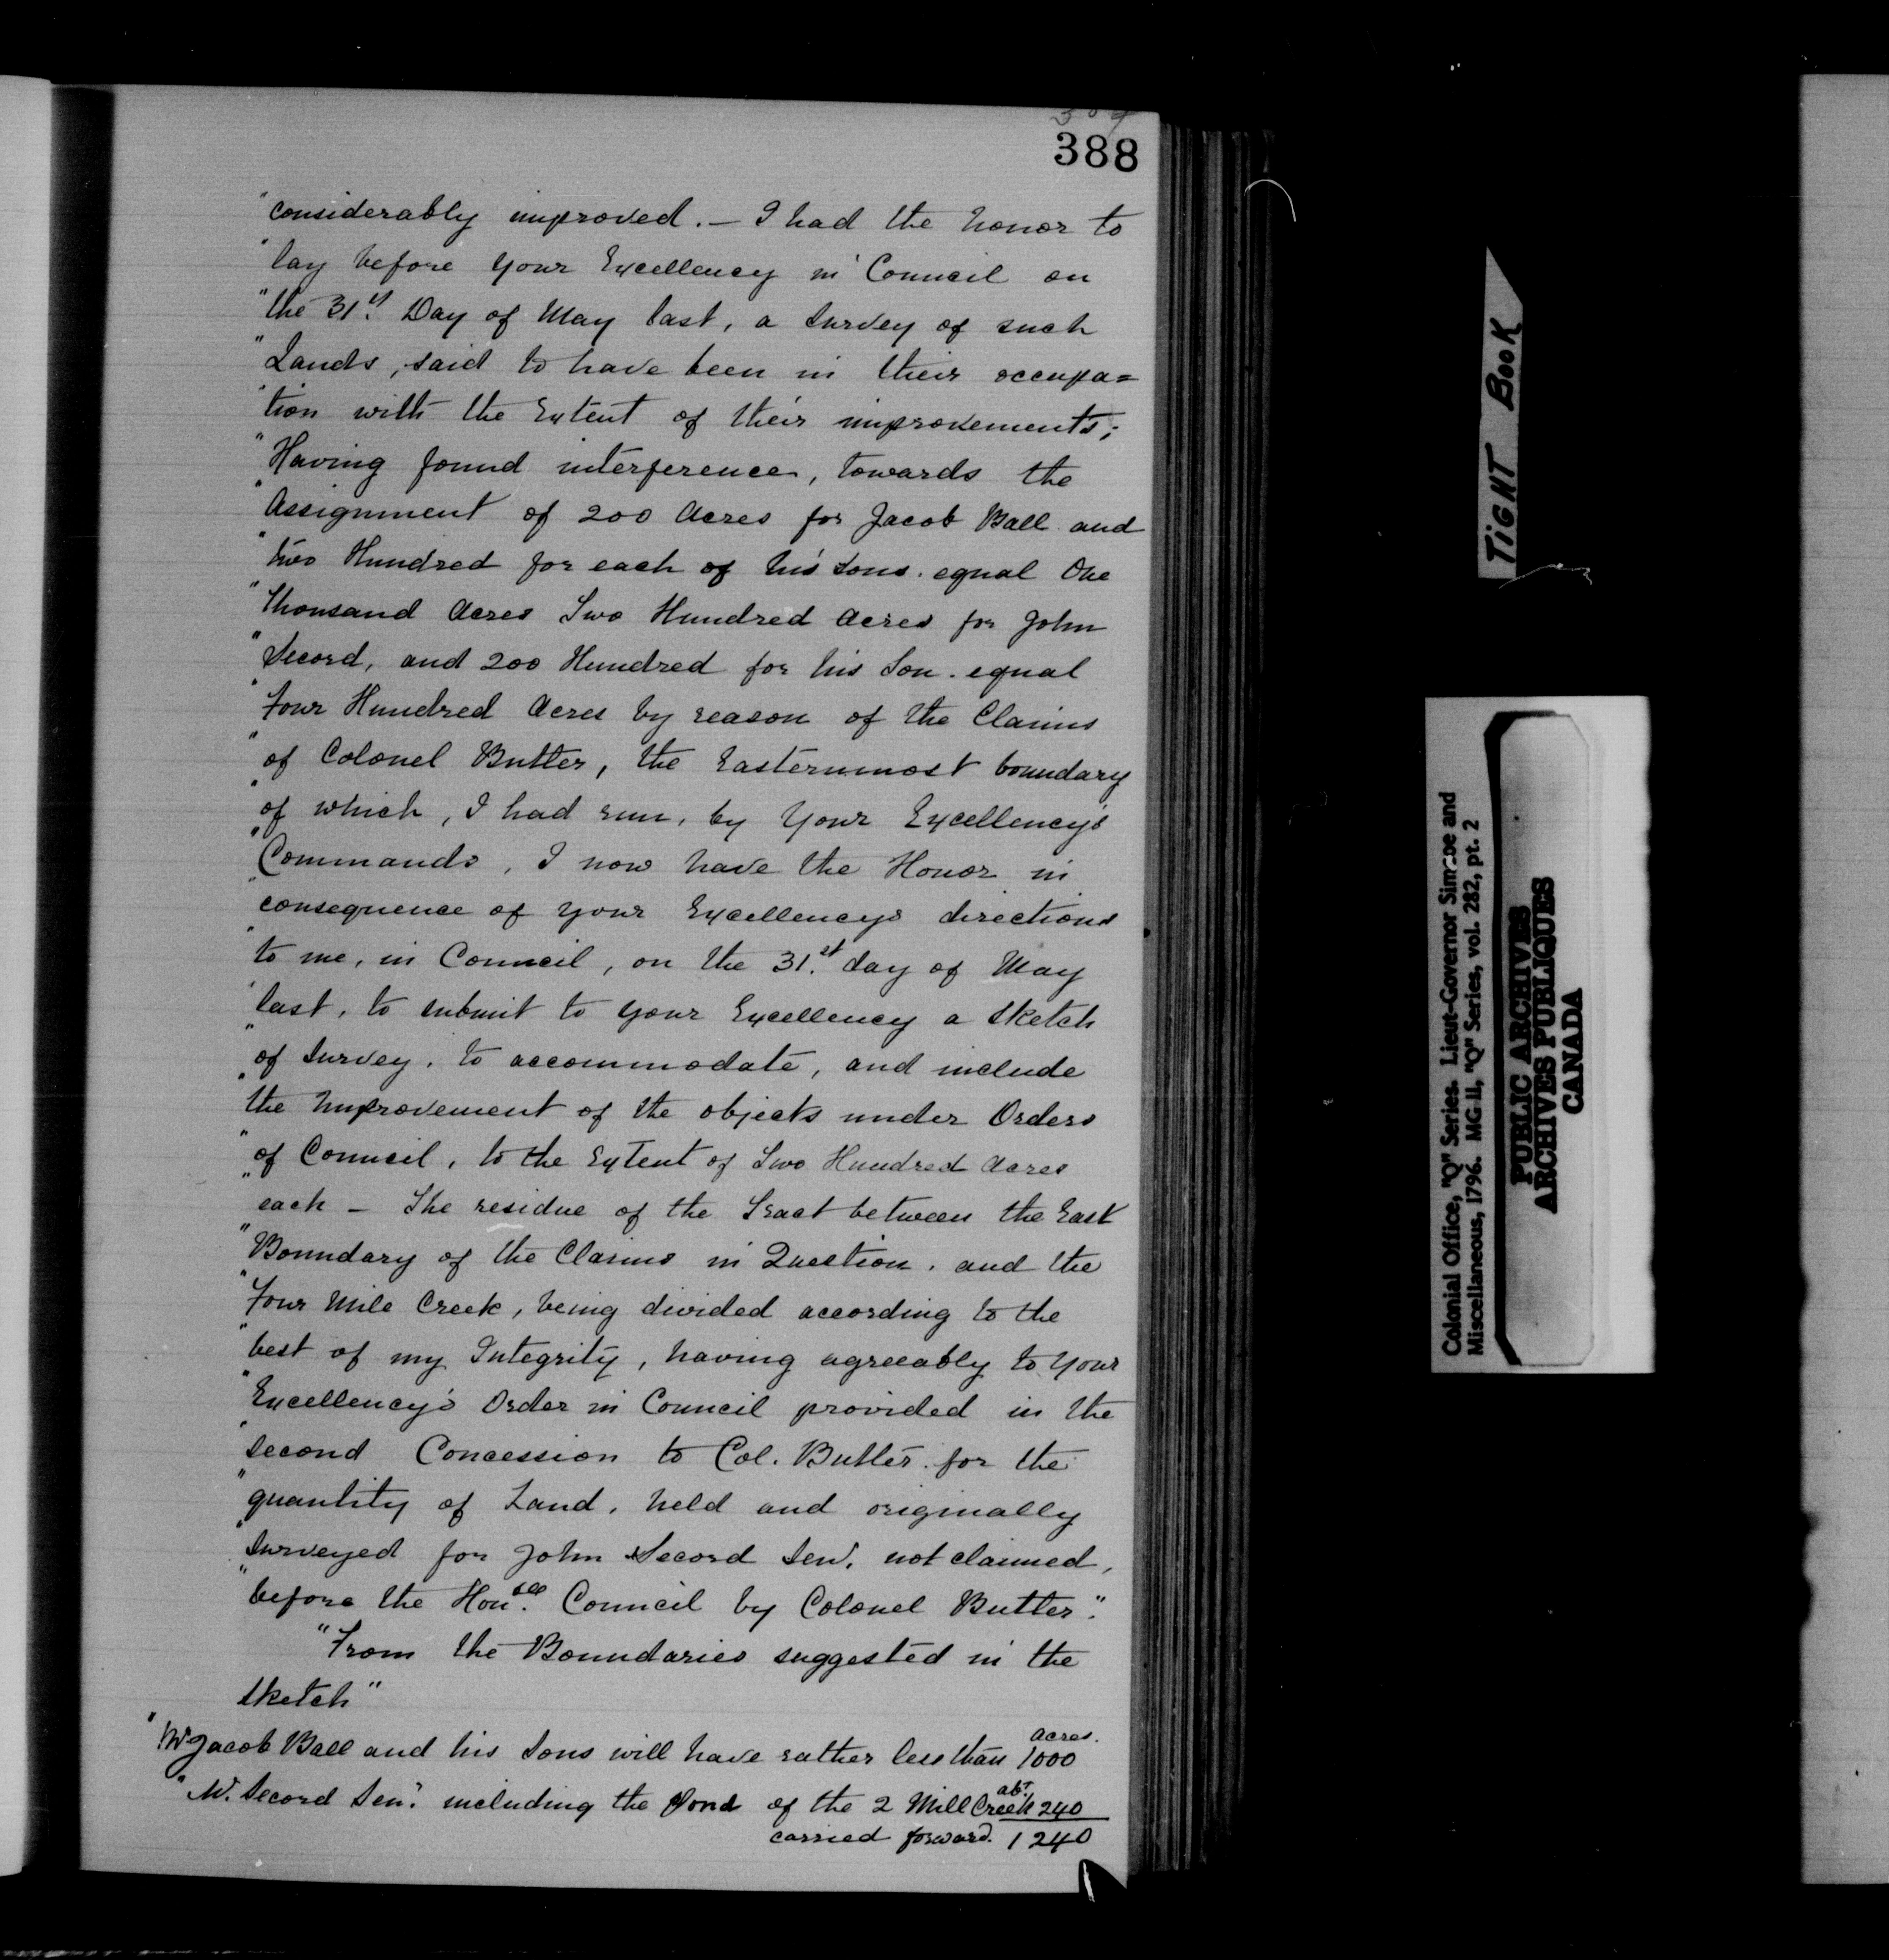 388
"considerably improved. — I had the honor to
"lay before your Excellency in Council on
"the 31st. Day of May last, a Survey of such
"Lands, said to have been in their occupa=
"tion with the Extent of their improvements;
"Having found interference, towards the
"Assignment of 200 Acres for Jacob Ball and
"two Hundred for each of his sons. equal One
"Thousand Acres Two Hundred Acres for John
"Secord, and 200 Hundred for his Son. equal
"Four Hundred Acres by reason of the Claims
"of Colonel Butler, the Easternmost boundary
"of which, I had run, by Your Excellency's
"Commands, I now have the Honor in
"consequence of your Excellencys directions
"to me, in Council, on the 31.st day of May
"last, to submit to your Excellency a Sketch
"of Survey, to accommodate, and include
"the Improvement of the objects under Orders
"of Council, to the Extent of Two Hundred Acres
"each — The residue of the Tract between the East
"Boundary of the Claims in Question, and the
"Four Mile Creek, being divided according to the
"best of my Integrity, having agreeably to Your
"Excellency's Order in Council provided in the
"Second Concession to Col. Butler for the
"quantity of Land, held and originally
"Surveyed for John Secord Senr. not claimed,
"before the Honble. Council by Colonel Butler".
"From the Boundaries suggested in the
Sketch"
acres.
"Mr Jacob Ball and his Sons will have rather less than 1000
"Mr. Secord Senr. including the Pond of the 2 Mill Creek abt. 240
carried forward. 1240
TIGHT BOOK
Colonial Office, "Q" Series. Lieut-Governor Simcoe and
Miscellaneous, 1796. MG 11, "Q" Series, vol. 282, pt. 2
PUBLIC ARCHIVES
ARCHIVES PUBLIQUES
CANADA